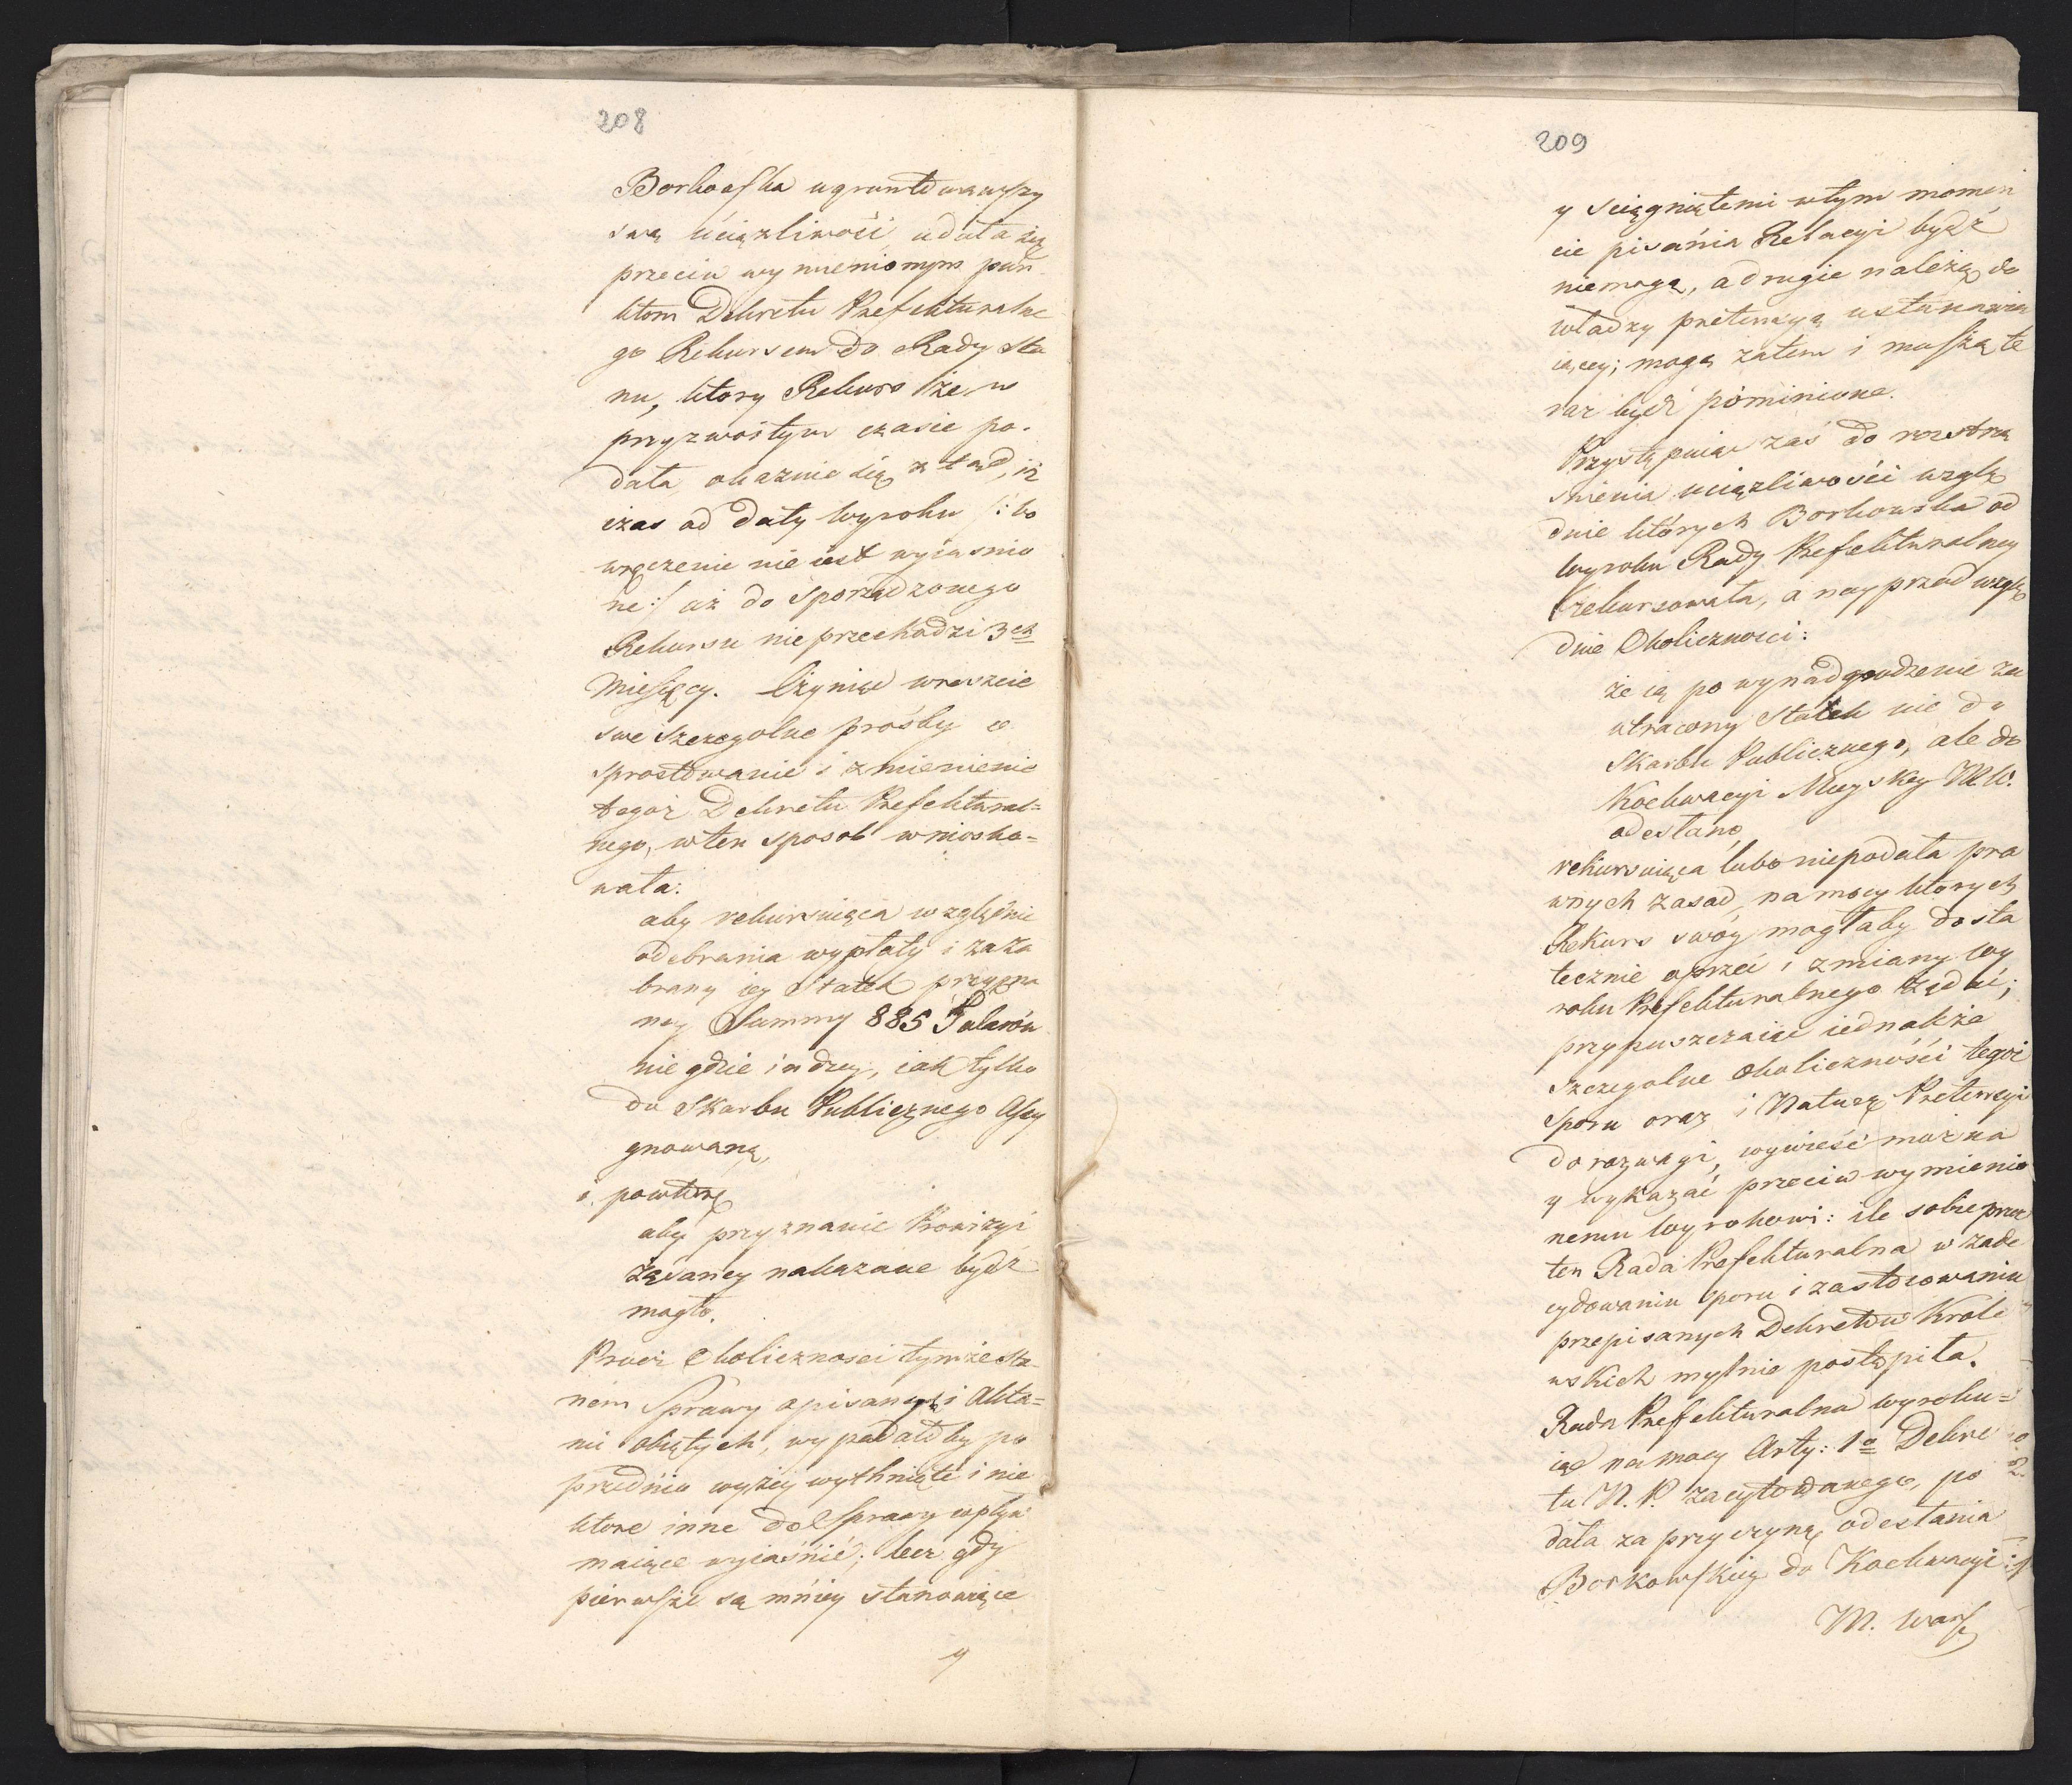 208
Borkowska ugruntowawszy
swą uciążliwość udała się
przeciw wymienionym pun
ktom Dekretu Prefekturalne
go Rekursem do Rady Sta
nu, ktory Rekurs że w
przyzwoitym czasie po-
dała, okazuie się ztąd, iż
czas od daty Wyroku /: bo
wręczenie nie iest wyiaśnio
ne :/ aż do sporządzonego
Rekursu nie przechodzi 3ch
Miesięcy. Czyniąc wreszcie
swe szczegolne prośby o
sprostowanie i zmienienie
tegoż Dekretu Prefektural=
nego, w ten sposob wniosko=
wała:
aby rekursuiąca względnie
odebrania wypłaty i za za
brany iey Statek przyzna
ney Summy 885 Talarów
nie gdzie indzey, iak tylko
do Skarbu Publicznego Assy
gnowaną,
i powtore
aby przyznanie Prowizyi
żądaney nakazane bydź
mogło.
Procz Okoliczności tymże Sta-
nem Sprawy opisanych i Akta=
mi obiętych, wypadałoby po
przednio wyżey wytknięte i nie
ktore inne do Sprawy wpływ
maiące wyiaśnić; lecz gdy
pierwsze są mniey stanowiące
y
209
y sciągniętemi w tym momen
cie pisania Relacyi bydź
niemogą, a drugie należą do
władzy pretensyą ustanawia
iącey; mogą zatem i muszą te
raz bydź pominione.
Przystępuiąc zaś do roztrzą
śnienia uciążliwości wzglę
dnie których Borkowska od
Wyroku Rady Prefekturalney
rekursowała, a nayprzod wzglę
dnie Okoliczności:
że ią po wynadgrodzenie za
utracony Statek nie do
Skarbu Publicznego, ale do
Koekwacyi Mieyskey M.W.
odesłano,
rekursuiąca lubo niepodała pra
wnych zasad, na mocy ktorych
Rekurs swóy mogłaby dosta
tecznie oprzeć i zmiany Wy
roku Prefekturalnego żądać;
przypuszczaiąc iednakże
szczegolne Okoliczności tegoż
Sporu oraz i Naturę Pretensyi
do rozwagi, wywieść można
y wykazać przeciw wymienio
nemu Wyrokowi: ile sobie przez
ten Rada Prefekturalna w zade
cydowaniu Sporu i zastosowaniu
przepisanych Dekretów Krole
wskich mylnie postąpiła.
Rada Prefekturalna wyroku=
iąc na mocy Arty: 1o Dekre
tu N. P. zacytowanego, po
dała za przyczynę odesłania
Borkowskiey do Koekwacyi
M. Warsz